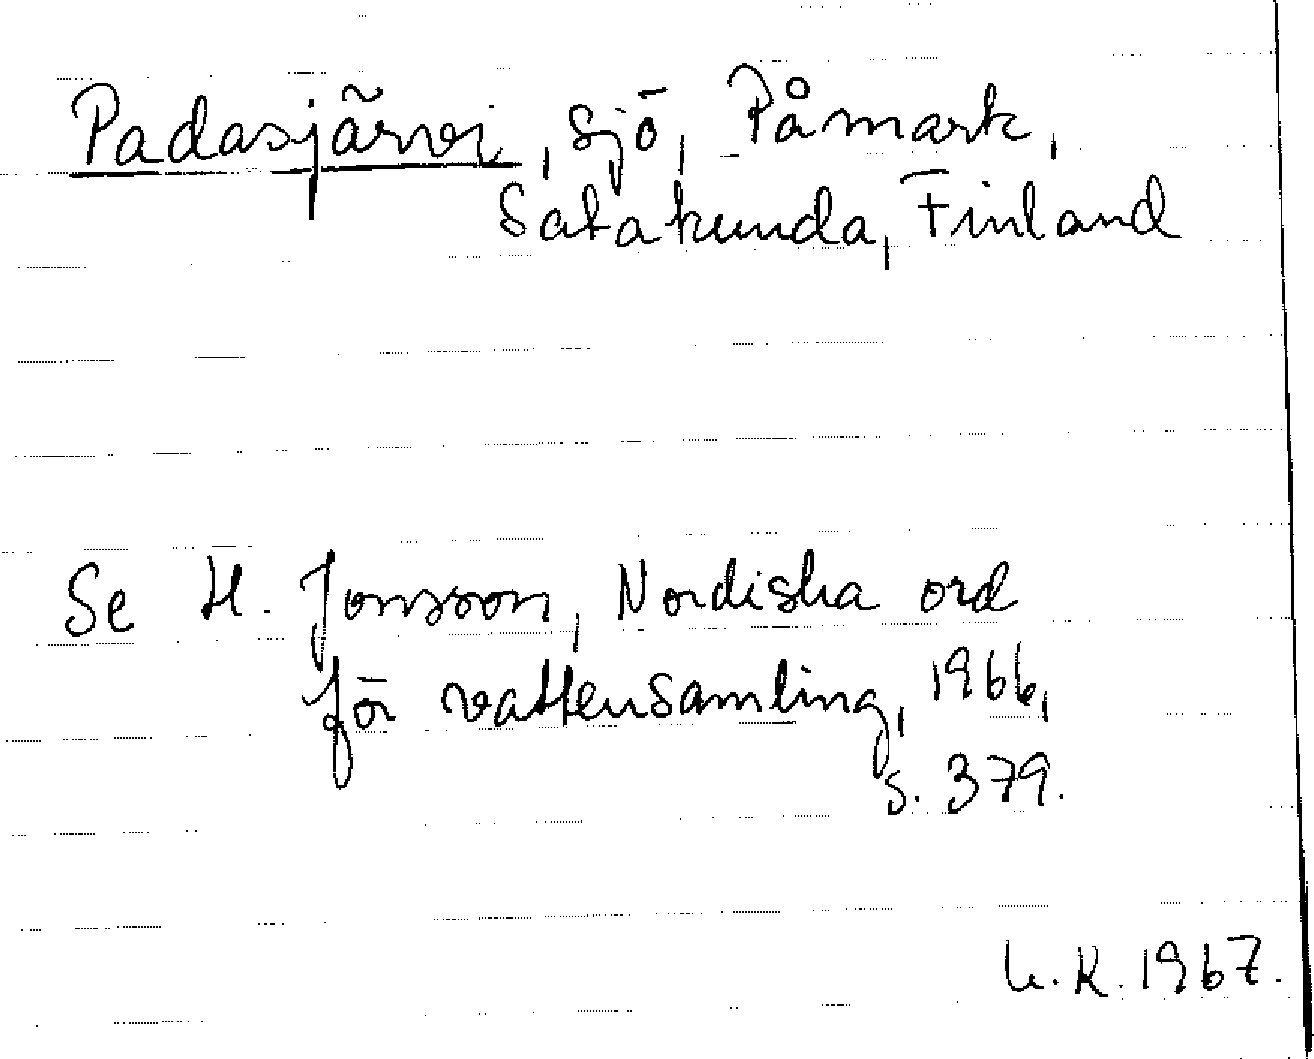 Padasjärvi, sjö, Påmark,
Satakunda, Finland
Se H. Jonsson, Nordiska ord
för vattensamling, 1966,
s. 379.
L. K. 1967.